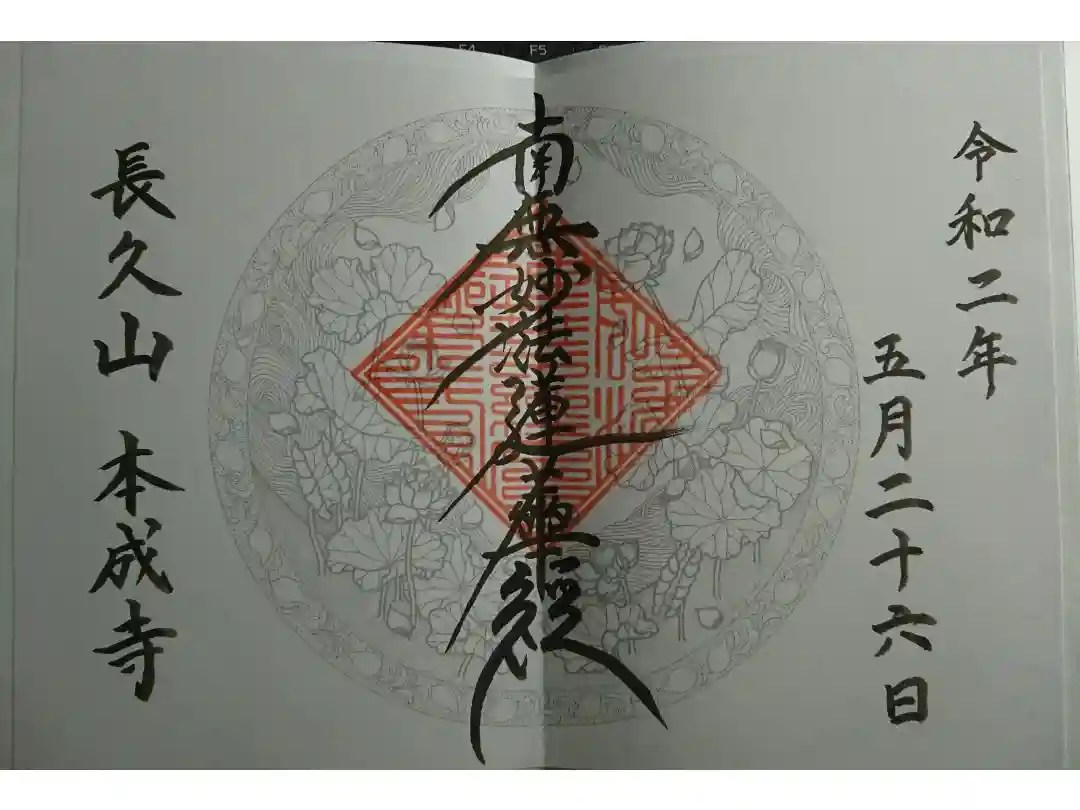 令和二年
五月二十六日
南無妙法蓮華經
長久山 本成寺
F5